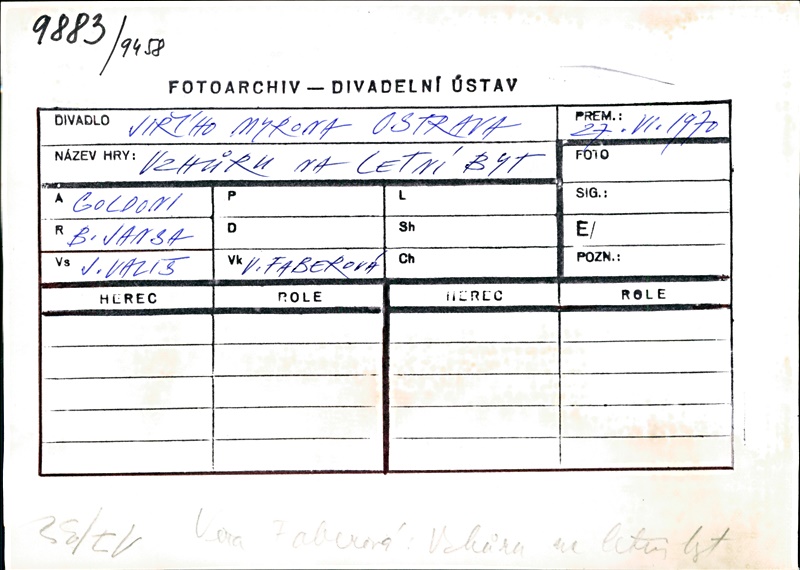 9883/9458
FOTOARCHIV — DIVADELNÍ ÚSTAV
DIVADLO JIŘÍHO MYRONA OSTRAVA
PREM.: 27. VI. 1970
NÁZEV HRY: VZHŮRU NA LETNÍ BYT
FOTO
A GOLDONI P L SIG.:
R B. JANSA D Sh E/
Vs J. VALIŠ Vk V. FABEROVÁ Ch POZN.:
HEREC ROLE HEREC ROLE
Věra Faberová: Vzhůru na letní byt